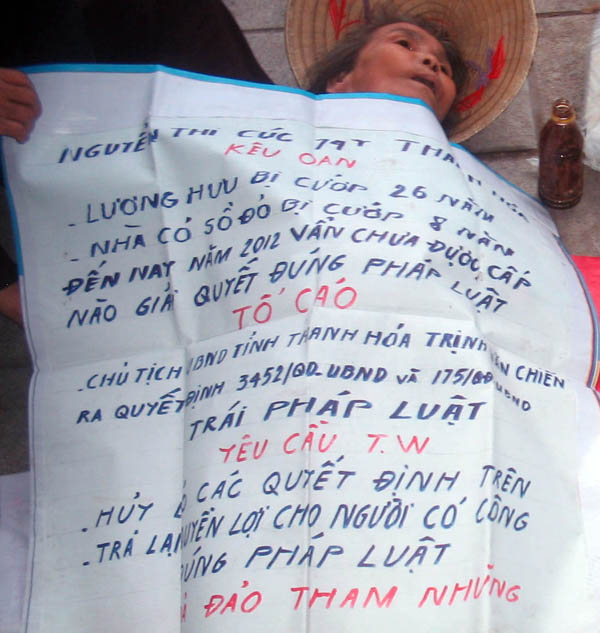 NGUYỄN THỊ CÚC 79T THANH HÓA
KÊU OAN
- LƯƠNG HƯU BỊ CƯỚP 26 NĂM
- NHÀ CÓ SỔ ĐỎ BỊ CƯỚP 8 NĂN
ĐẾN NAY NĂM 2012 VẪN CHƯA ĐƯỢC CẤP
NÀO GIẢI QUYẾT ĐÚNG PHÁP LUẬT
TỐ CÁO
- CHỦ TỊCH UBND TỈNH THANH HÓA TRỊNH CHIẾN
RA QUYẾT ĐỊNH 3452/QĐ_UBND VÀ 175/QĐ UBND
TRÁI PHÁP LUẬT
YÊU CẦU T.W
- HỦY CÁC QUYẾT ĐỊNH TRÊN
- TRẢ LẠI LỢI CHO NGƯỜI CÓ CÔNG
PHÁP LUẬT
ĐẢO THAM NHŨNG